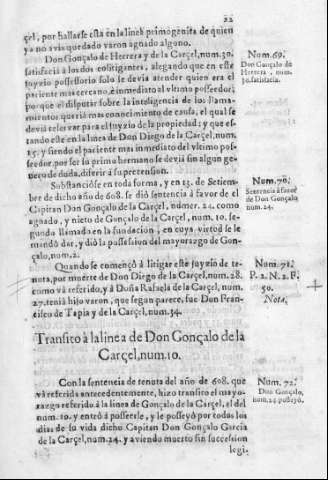 22
çel, por hallarse esta en la linea primogenita de quien
ya no avia quedado varon agnado alguno.
Don Gonçalo de Herrera y de la Carçel, num. 30.
satisfacia à los dos colitigantes, alegando que en este
juyzio possessorio solo se devia atender quien era el
pariente mas cercano, è immediato al vltimo posseedor;
porque el disputar sobre la inteligencia de los llama-
mientos queria mas conocimiento de causa, el qual se
devia reservar para el juyzio de la propiedad; y que es-
tando este en la linea de Don Diego de la Carçel, num.
15. y siendo el pariente mas inmediato del vltimo pos-
seedor por ser su primo hermano se devia sin algun ge-
nero de duda, diferir à su pretension.
Num. 69.
Don Gonçalo de
Herrera, num.
30. satisfacia.
Substanciòse en toda forma, y en 23. de Setiem-
bre de dicho año de 608. se diò sentencia à favor de el
Capitan Don Gonçalo de la Carçel, numer. 24. como
agnado, y nieto de Gonçalo de la Carçel, num. 10. se-
gundo llamado en la fundacion, en cuya virtud se le
mandò dar, y diò la possession del mayorazgo de Gon-
çalo, num. 2.
Num. 70.
Sentencia à favor
de Don Gonçalo,
num. 24.
Quando se començò à litigar este juyzio de te-
nuta, por muerte de Don Diego de la Carçel, num. 28.
como và referido, y à Doña Rafaela de la Carçel, num.
27. tenia hijo varon, que segun parece, fue Don Fran-
cisco de Tapia y de la Carçel, num. 34.
Num. 71.
P. 2. N. 2. F.
50.
Nota.
Transito à la linea de Don Gonçalo de la
Carçel, num. 10.
Con la sentencia de tenuta del año de 608. que
và referida antecedentemente, hizo transito el mayo-
razgo referido à la linea de Gonçalo de la Carçel, el del
num. 10. y entrò à posseerle, y le posseyò por todos los
dias de su vida dicho Capitan Don Gonçalo Garcia
de la Carçel, num. 24. y aviendo muerto sin succession
legi-
Num. 72.
Don Gonçalo,
num. 24. posseyò.